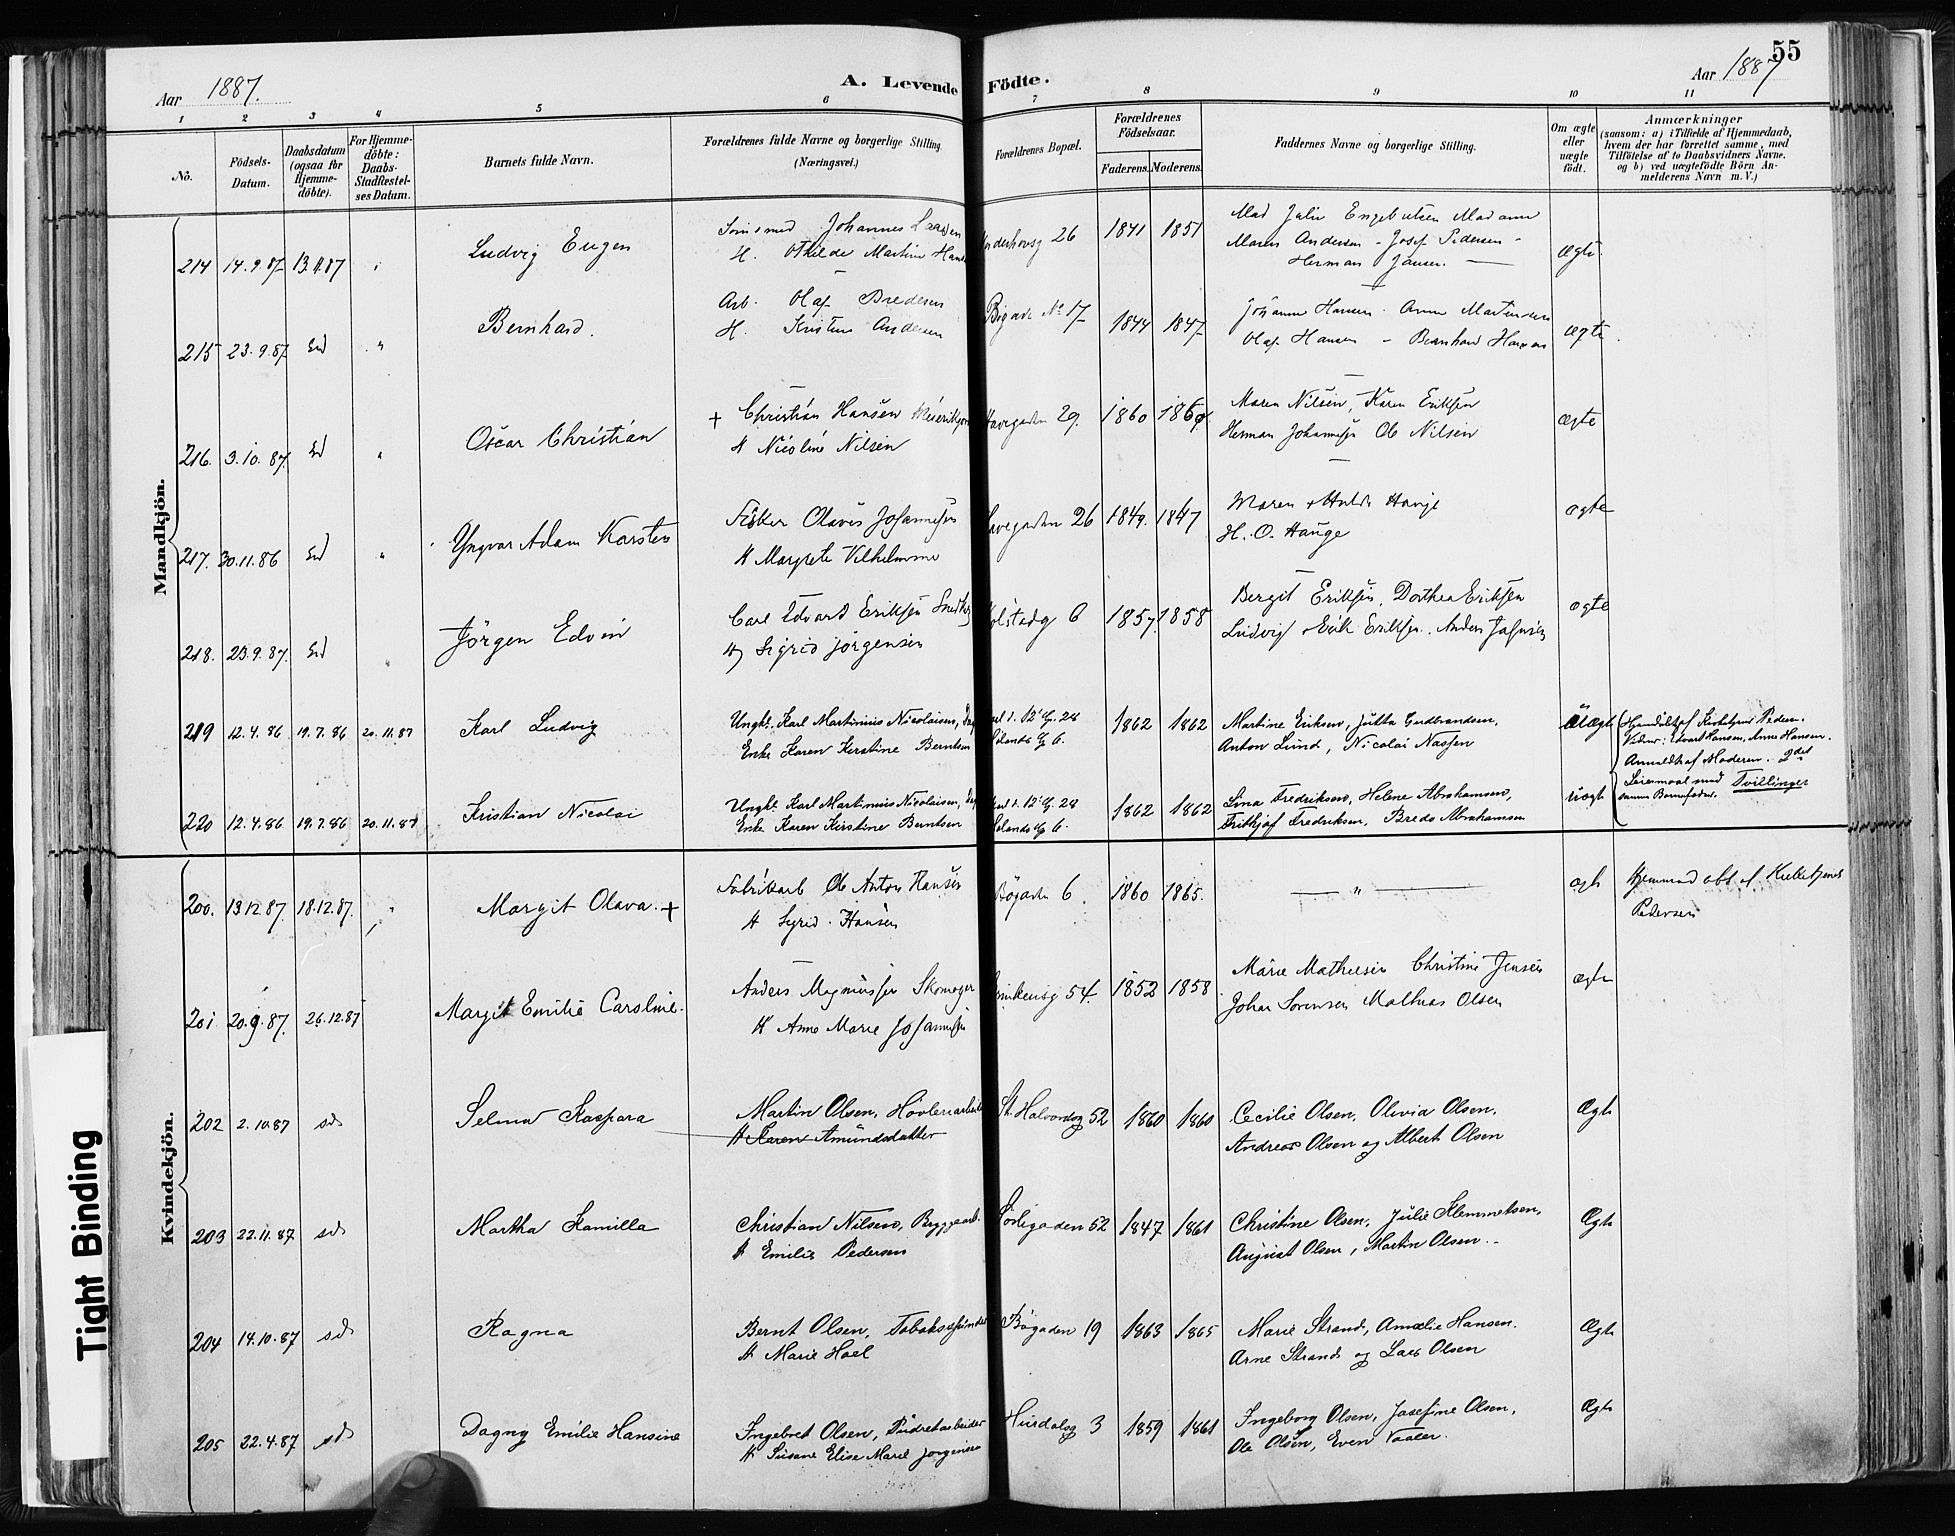 Aar 1887.
A. Levende Födte.
Aar 1887
55
1 2 3 4 5 6 7 8 9 10 11
No.
Födsels-Datum.
Daabsdatum (ogsaa for Hjemme-döbte).
For Hjemme-döbte: Daabs-Stadfæstel-ses Datum.
Barnets fulde Navn.
Forældrenes fulde Navne og borgerlige Stilling. (Næringsvei.)
Forældrenes Bopæl.
Forældrenes Födselsaar.
Faderens. Moderens.
Faddernes Navne og borgerlige Stilling.
Om ægte eller uægte födt.
Anmærkninger
(saasom: a) i Tilfælde af Hjemmedaab,
hvem der har forrettet samme, med
Tilföielse af to Daabsvidners Navne,
og b) ved uægtefödte Börn An-
melderens Navn m. V.)
Mandkjön.
214 14.9.87 13.11.87 Ludvig Eugen Johannes 26 1841 1851 Mad Julie Madame Ægte
H. Othilde Martine Maren Andersen - Josef Pedersen -
Herman Jansen
215 23.9.87 Sd " Bernhard. Arb. Olaf Bredesen Bögade No 17 1844 1847 Johanne Hansen Anne Ægte
H. Kristine Andersen Olaf Hansen - Bernhard Hansen
216. 3.10.87. Sd " Oscar Christian + Christian Hansen 29. 1860 Maren Nilsen, Karen Eriksen Ægte
H Nicoline Nilsen Herman Johannesen Ole Nilsen
217. 30.11.86 Sd " Yngvar Adam Karsten Fisker Olaves Johannesen 26 1849. 1847 Maren Hulda Hauge Ægte
H Margrete Vilhelmine H. O. Hauge
218. 23.9.87. Sd Jörgen Edvin Carl Edvard Eriksen 6 1857. 1858 Bergit Eriksen, Dorthea Eriksen Ægte
H Sigrid Jörgensen Ludvig Erik Eriksen. Anders
219 12.4.86 19.7.86 20.11.87 Karl Ludvig Ungkl. Karl Martinius Nicolaisen, 28 1862 1862 Martine Eriksen, Jutta Gudbrandsen, Uægt
Enke Karen Kirstine Berntsen 6. Anton Lund, Nicolai Nassen
Hjemdöbt af Kirketjener Pedersen.
Vidner: Edvart Hansen, Anne Hansen.
Anmeldt af Moderen. 2det
Leiermaal med samme Barnefader. Tvillinger
220 12.4.86 19.7.86 20.11.87 Kristian Nicolai Ungkl. Karl Martinius Nicolaisen, 28 1862 1862 Lina Fredriksen, Helene Abrahamsen, uægt
Enke Karen Kirstine Berntsen 6. Frithjof Fredriksen, Brede Abrahamsen
Kvindekjön.
200. 13.12.87. 18.12.87. " Margit Olava. + Fabrikarb Ole Anton Hansen Bögaden 6. 1860 1865. " ægte Hjemmedöbt af Kirketjener
H Sigrid Hansen Pedersen
201 20.9.87. 26.12.87 Margit Emilie Caroline. Anders Magnussen Skomager 54. 1852 1858 Marie Mathesen Christine Jensen Ægte
H Anne Marie Johannesen Johan Sorensen Mathias Olsen
202 2.10.87 sd Selma Kaspara Martin Olsen, Hövleriarbeider St. Halvordsg 52 1860 1860 Cecilie Olsen, Olivia Olsen, Ægte
H Karen Amundsdatter Andreas Olsen og Albert Olsen
203 22.11.87 sd Martha Kamilla Christian Nilsen, Byggearb. Sörligaden 52 1847 1861 Christine Olsen, Julie Klemmetsen, Ægte
H Emilie Pedersen August Olsen, Martin Olsen.
204 14.10.87 sd Ragna Bernt Olsen, Tobaksspinder Bögaden 19 1863 1865 Marie Strand, Amalie Hansen. Ægte
H Marie Hoel Arne Strand og Lars Olsen
205 22.4.87 sd Dagny Emilie Hansine Ingebret Olsen, Pudretarbeider Hurdalsg 3 1859 1861 Ingeborg Olsen, Josefine Olsen, Ægte
H Susane Elise Marie Jörgensen Ole Olsen, Even Vaaler.
Tight Binding